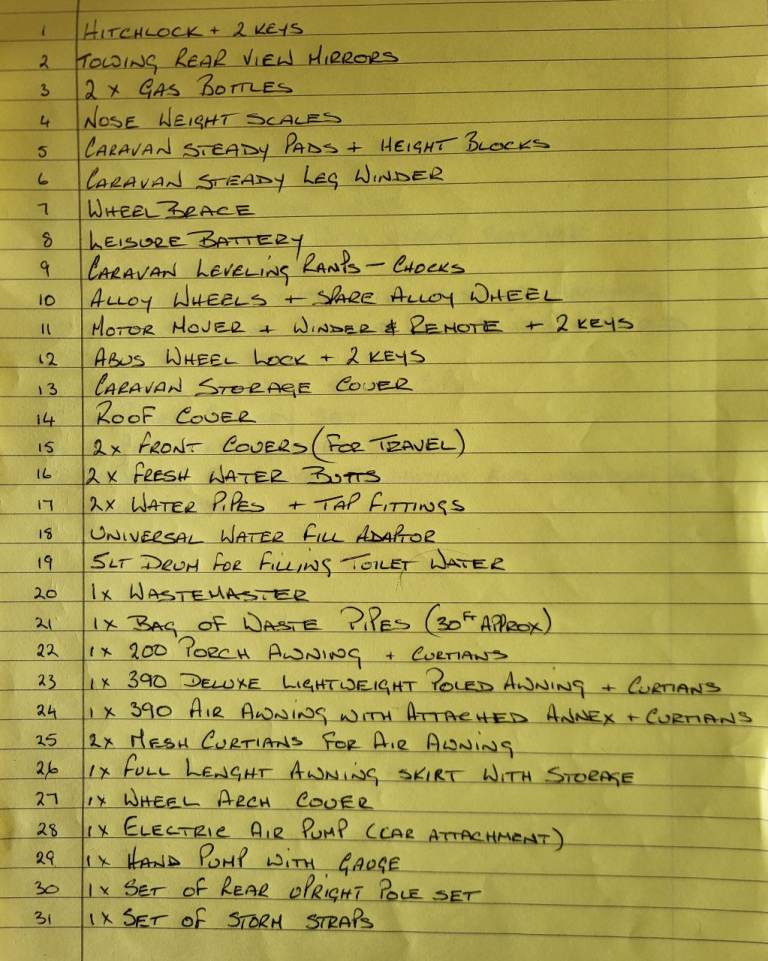 1 HITCHLOCK + 2 KEYS
2 TOWING REAR VIEW MIRRORS
3 2 x GAS BOTTLES
4 NOSE WEIGHT SCALES
5 CARAVAN STEADY PADS + HEIGHT BLOCKS
6 CARAVAN STEADY LEG WINDER
7 WHEEL BRACE
8 LEISURE BATTERY
9 CARAVAN LEVELING RAMPS - CHOCKS
10 ALLOY WHEELS + SPARE ALLOY WHEEL
11 MOTOR MOVER + WINDER & REMOTE + 2 KEYS
12 ABUS WHEEL LOCK + 2 KEYS
13 CARAVAN STORAGE COVER
14 ROOF COVER
15 2x FRONT COVERS (FOR TRAVEL)
16 2 x FRESH WATER BUTTS
17 2x WATER PIPES + TAP FITTINGS
18 UNIVERSAL WATER FILL ADAPTOR
19 5LT DRUM FOR FILLING TOILET WATER
20 1x WASTEMASTER
21 1x BAG OF WASTE PIPES (30FT APPROX)
22 1x 200 PORCH AWNING + CURTIANS
23 1x 390 DELUXE LIGHTWEIGHT POLED AWNING + CURTIANS
24 1x 390 AIR AWNING WITH ATTACHED ANNEX + CURTIANS
25 2x MESH CURTIANS FOR AIR AWNING
26 1x FULL LENGHT AWNING SKIRT WITH STORAGE
27 1x WHEEL ARCH COVER
28 1x ELECTRIC AIR PUMP (CAR ATTACHMENT)
29 1x HAND PUMP WITH GAUGE
30 1x SET OF REAR UPRIGHT POLE SET
31 1x SET OF STORM STRAPS